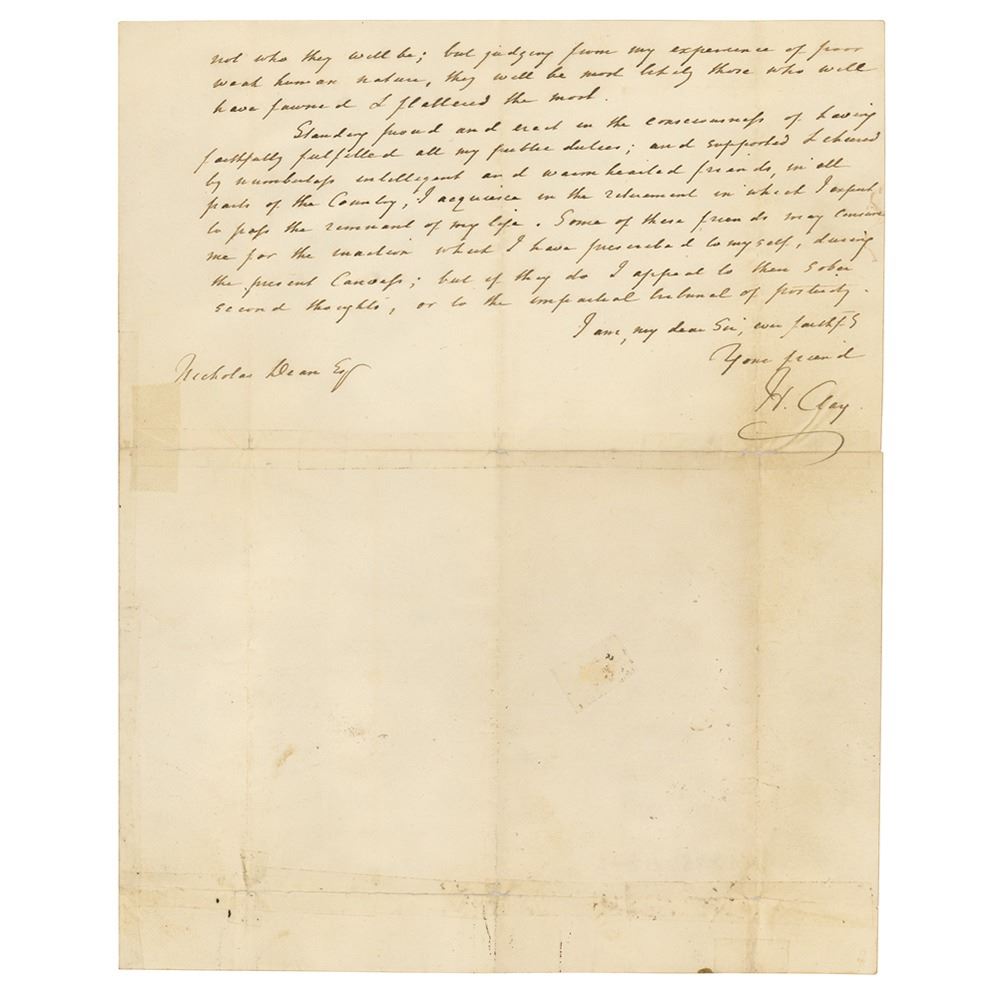 not who they will be; but judging from my experience of poor
weak human nature, they will be most likely those who will
have fawned & flattered the most.
Standing proud and erect in the consciousness of having
faithfully fulfilled all my public duties; and supported & cheered
by numberless intelligent and warm hearted friends, in all
parts of the Country, I acquiesce in the retirement in which I expect
to pass the remnant of my life. Some of these friends may censure
me for the inaction which I have prescribed to myself, during
the present Canvass; but if they do I appeal to their sober
second thoughts, or to the impartial tribunal of posterity.
I am, my dear Sir, ever faithfy
Your friend
H. Clay
Nicholas Dean Esq